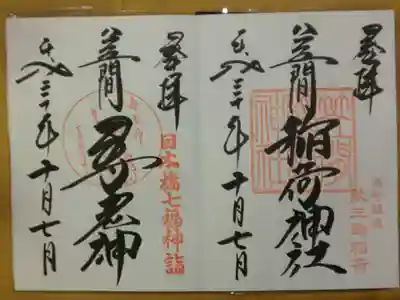 奉拝
笠間稲荷神社
平成三十年十月七日
奉拝
笠間寿老神
日本橋七福神詣
平成三十年十月七日